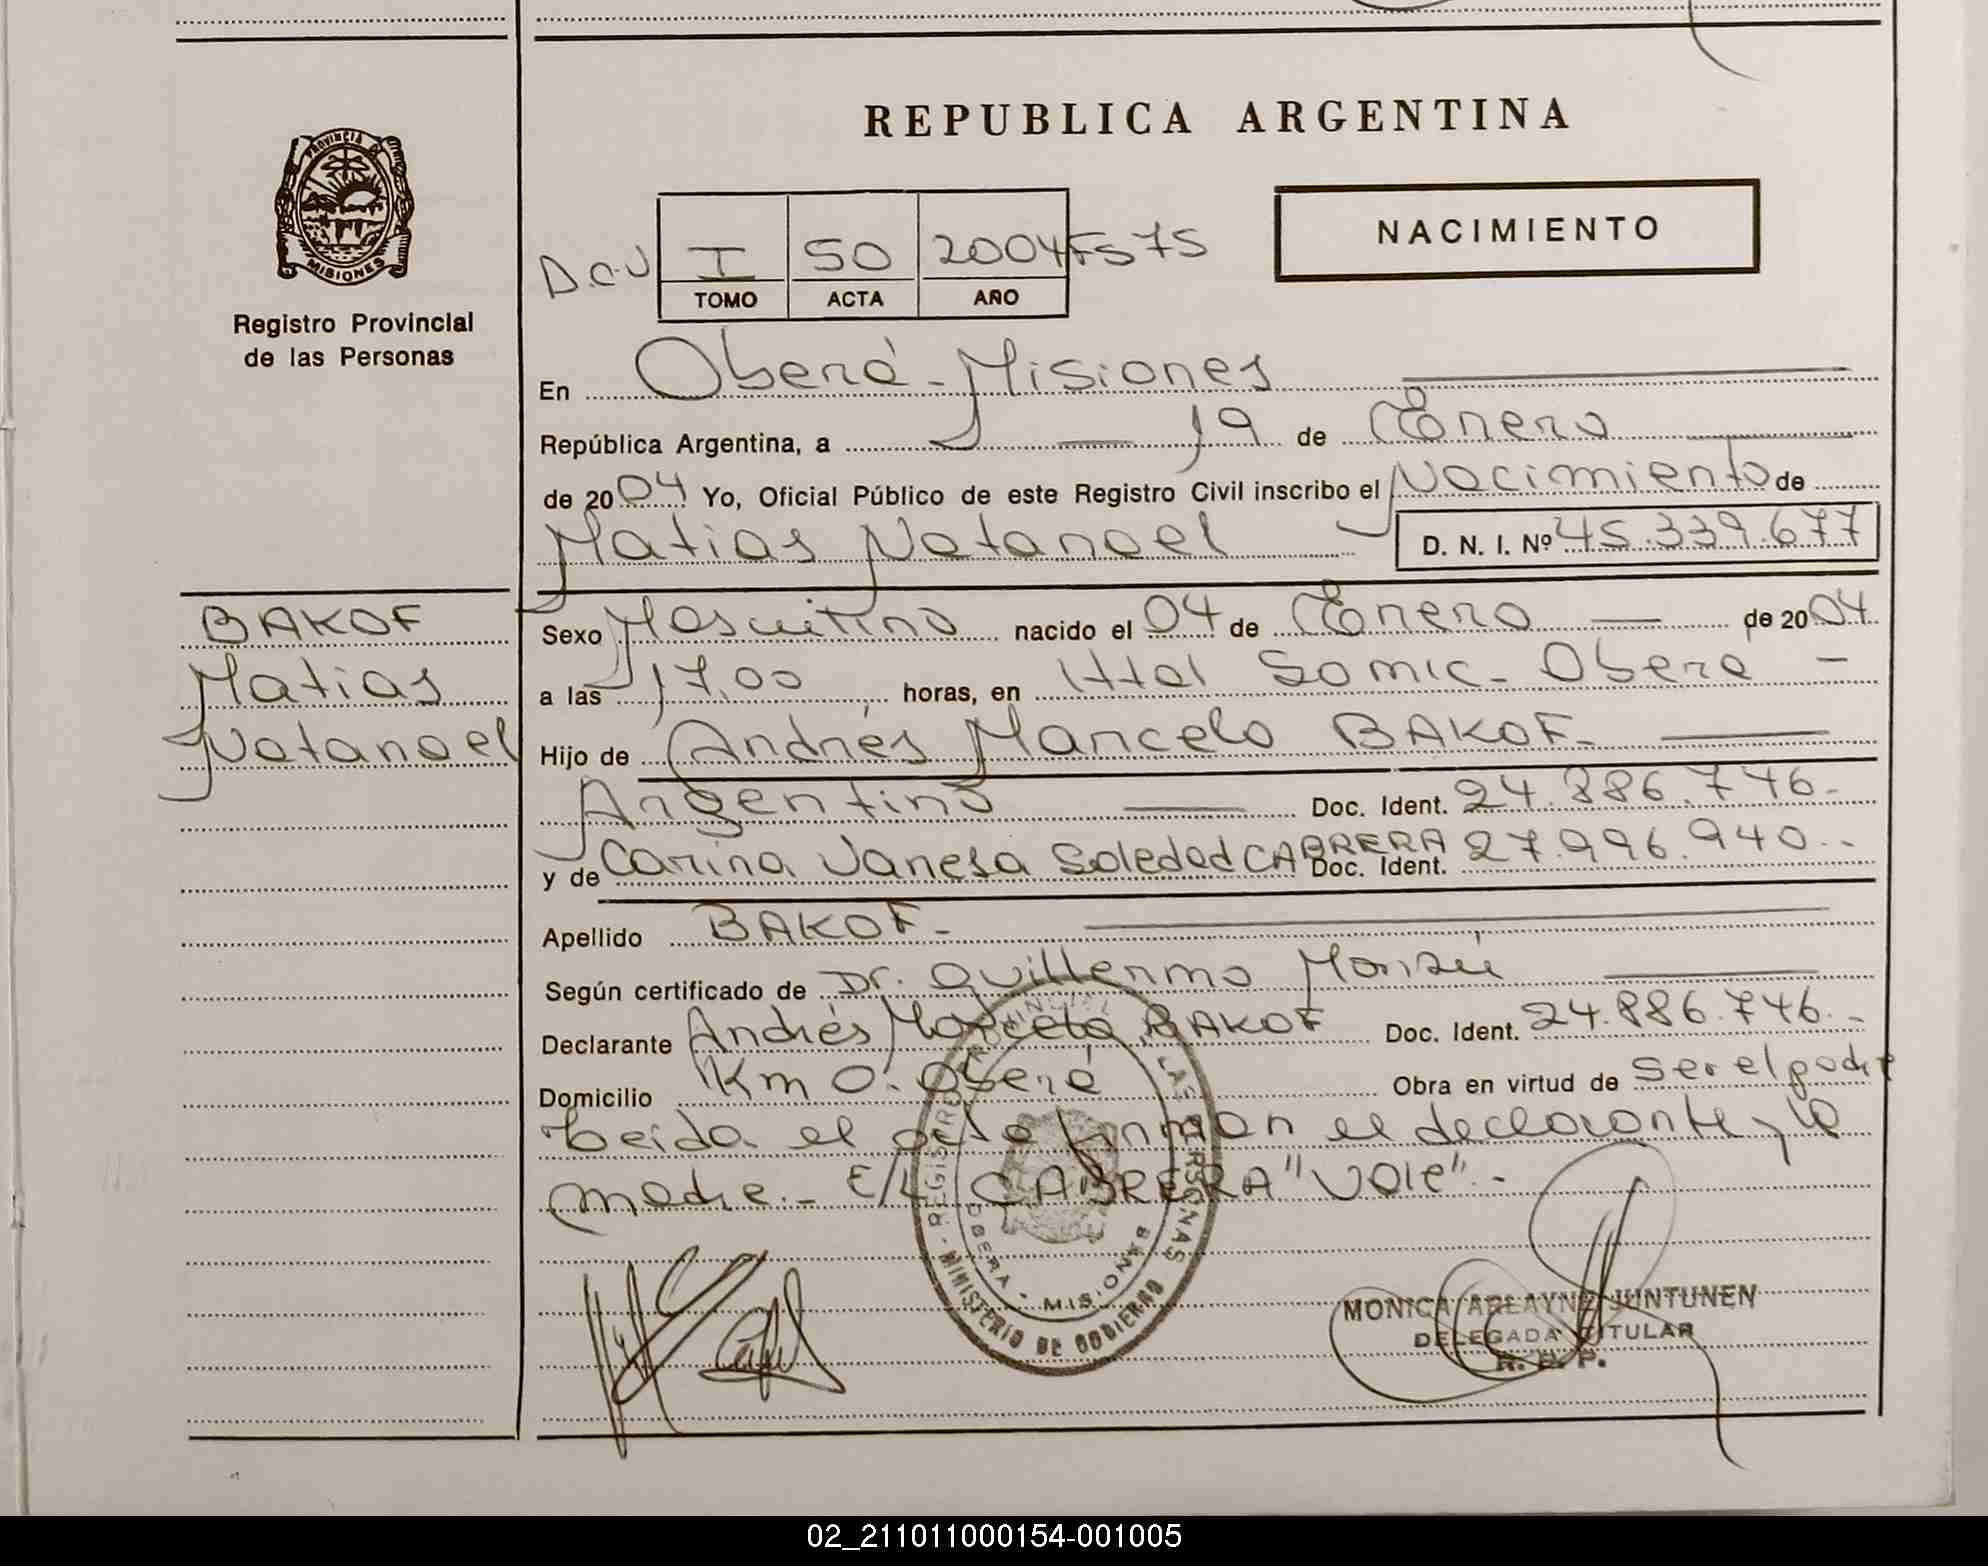 REPUBLICA ARGENTINA
PROVINCIA DE
MISIONES
Registro Provincial
de las Personas
NACIMIENTO
D.C.U I 50 2004 Fs 75
TOMO ACTA AÑO
En Oberá - Misiones
República Argentina, a 19 de Enero
de 2004 Yo, Oficial Público de este Registro Civil inscribo el Nacimiento de
Matias Natanael D. N. I. Nº 45.339.677
BAKOF
Matias
Natanael
Sexo Masculino nacido el 04 de Enero de 2004
a las 17.00 horas, en Htal Samic - Oberá -
Hijo de Andrés Marcelo BAKOF -
Argentino Doc. Ident. 24.886.746.-
y de Carina Vanesa Soledad CABRERA Doc. Ident. 27.996.940.-
Apellido BAKOF -
Según certificado de Dr. Guillermo Monzú
Declarante Andrés Marcelo BAKOF Doc. Ident. 24.886.746.-
Domicilio Km 0. Oberá Obra en virtud de ser el padre
Leida el acta firman el declarante y la
madre.- E/L CABRERA "Vale".-
REGISTRO PROVINCIAL DE LAS PERSONAS
OBERA - MISIONES
MINISTERIO DE GOBIERNO
MONICA ARLAYNE JUNTUNEN
DELEGADA TITULAR
R. P. P.
02_211011000154-001005